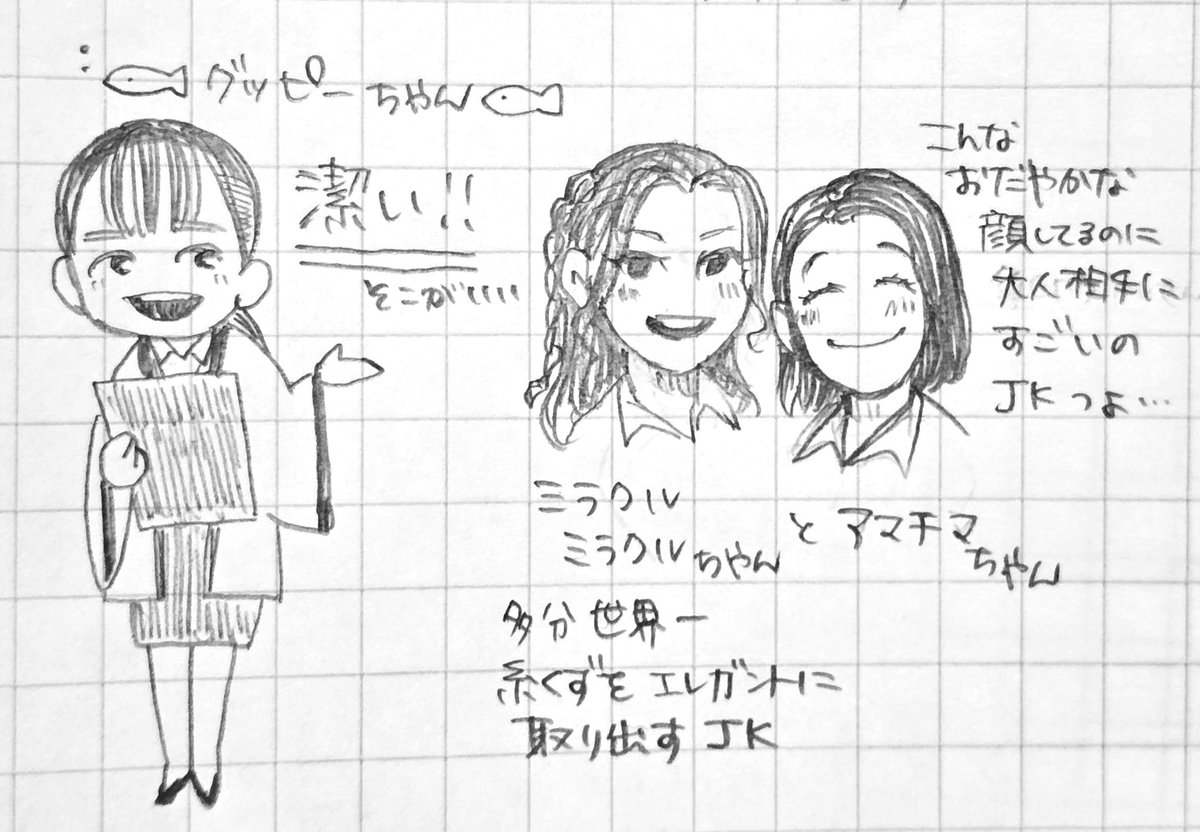 グッピーちゃん
潔い!!
そこがいい
こんな
おだやかな
顔してるのに
大人相手に
すごいの
JKつよ…
ミラクル
ミラクルちゃん
と アマチマ
ちゃん
多分世界一
糸くずを エレガントに
取り出す JK